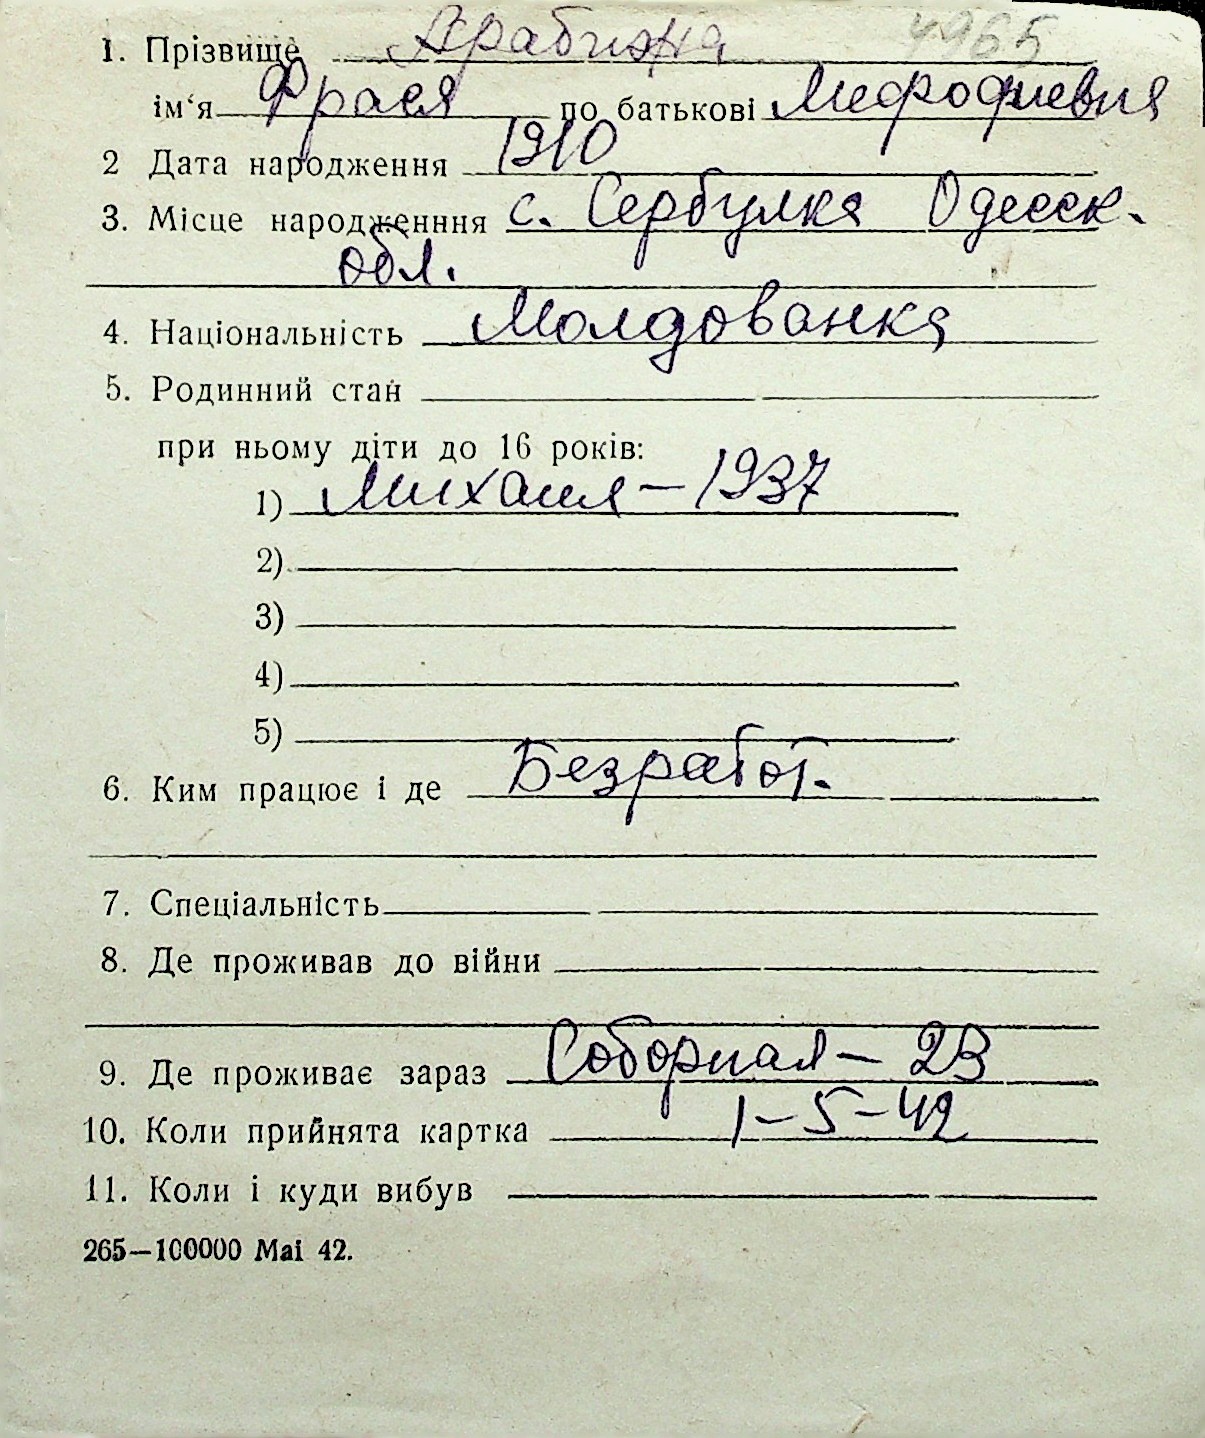 4965
1. Прізвище Арабижа
ім‘я Фрася по батькові Мефодиевна
2 Дата народження 1910
3. Місце народженння с. Сербулка Одесск.
обл.
4. Національність Молдованка
5. Родинний стан
при ньому діти до 16 років:
1) Михаил – 1937
2)
3)
4)
5)
6. Ким працює і де Безработ.
7. Спеціальність
8. Де проживав до війни
9. Де проживає зараз Соборная – 23
10. Коли прийнята картка 1-5-42
11. Коли і куди вибув
265—100000 Mai 42.